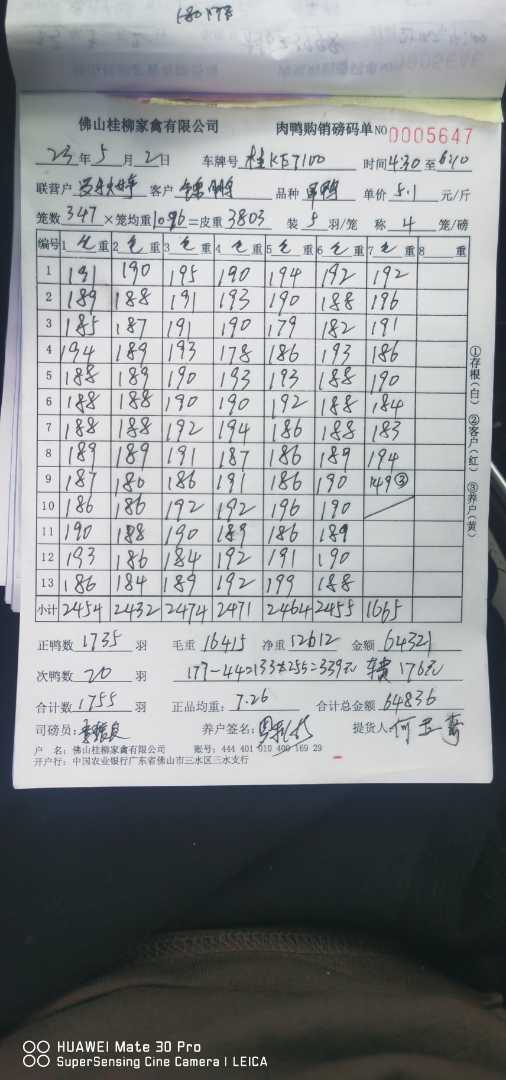 佛山桂柳家禽有限公司 肉鸭购销磅码单 NO 0005647
23年5月2日 车牌号 桂KE7100 时间4:30至6:10
联营户 客户 品种 单价 5.1 元/斤
笼数 347 ×笼均重10.96=皮重3803 装 5 羽/笼 称 4 笼/磅
编号 1 毛重 2 毛重 3 毛重 4 毛重 5 毛重 6 毛重 7 毛重 8 重
1 191 190 195 190 194 192 192
2 189 188 191 193 190 188 196
3 185 187 191 190 179 182 191
4 194 189 193 178 186 193 186
5 188 189 190 193 193 188 190
6 188 188 190 190 192 188 184
7 188 188 192 194 186 188 183
8 189 189 191 187 186 189 194
9 187 180 186 191 186 190 149③
10 186 186 192 192 196 190
11 190 188 190 189 186 189
12 193 186 184 192 191 190
13 186 184 189 192 199 188
小计 2454 2432 2474 2471 2464 2455 1665
正鸭数 1735 羽 毛重 16415 净重 12612 金额 64321
次鸭数 20 羽 177-44=133×2.55=339元 车费 176元
合计数 1755 羽 正品均重: 7.26 合计总金额 64836
司磅员: 养户签名: 提货人:
户 名: 佛山桂柳家禽有限公司 账号: 444 401 010 400 169 29
开户行: 中国农业银行广东省佛山市三水区三水支行
①存根(白) ②客户(红) ③养户(黄)
HUAWEI Mate 30 Pro
SuperSensing Cine Camera | LEICA